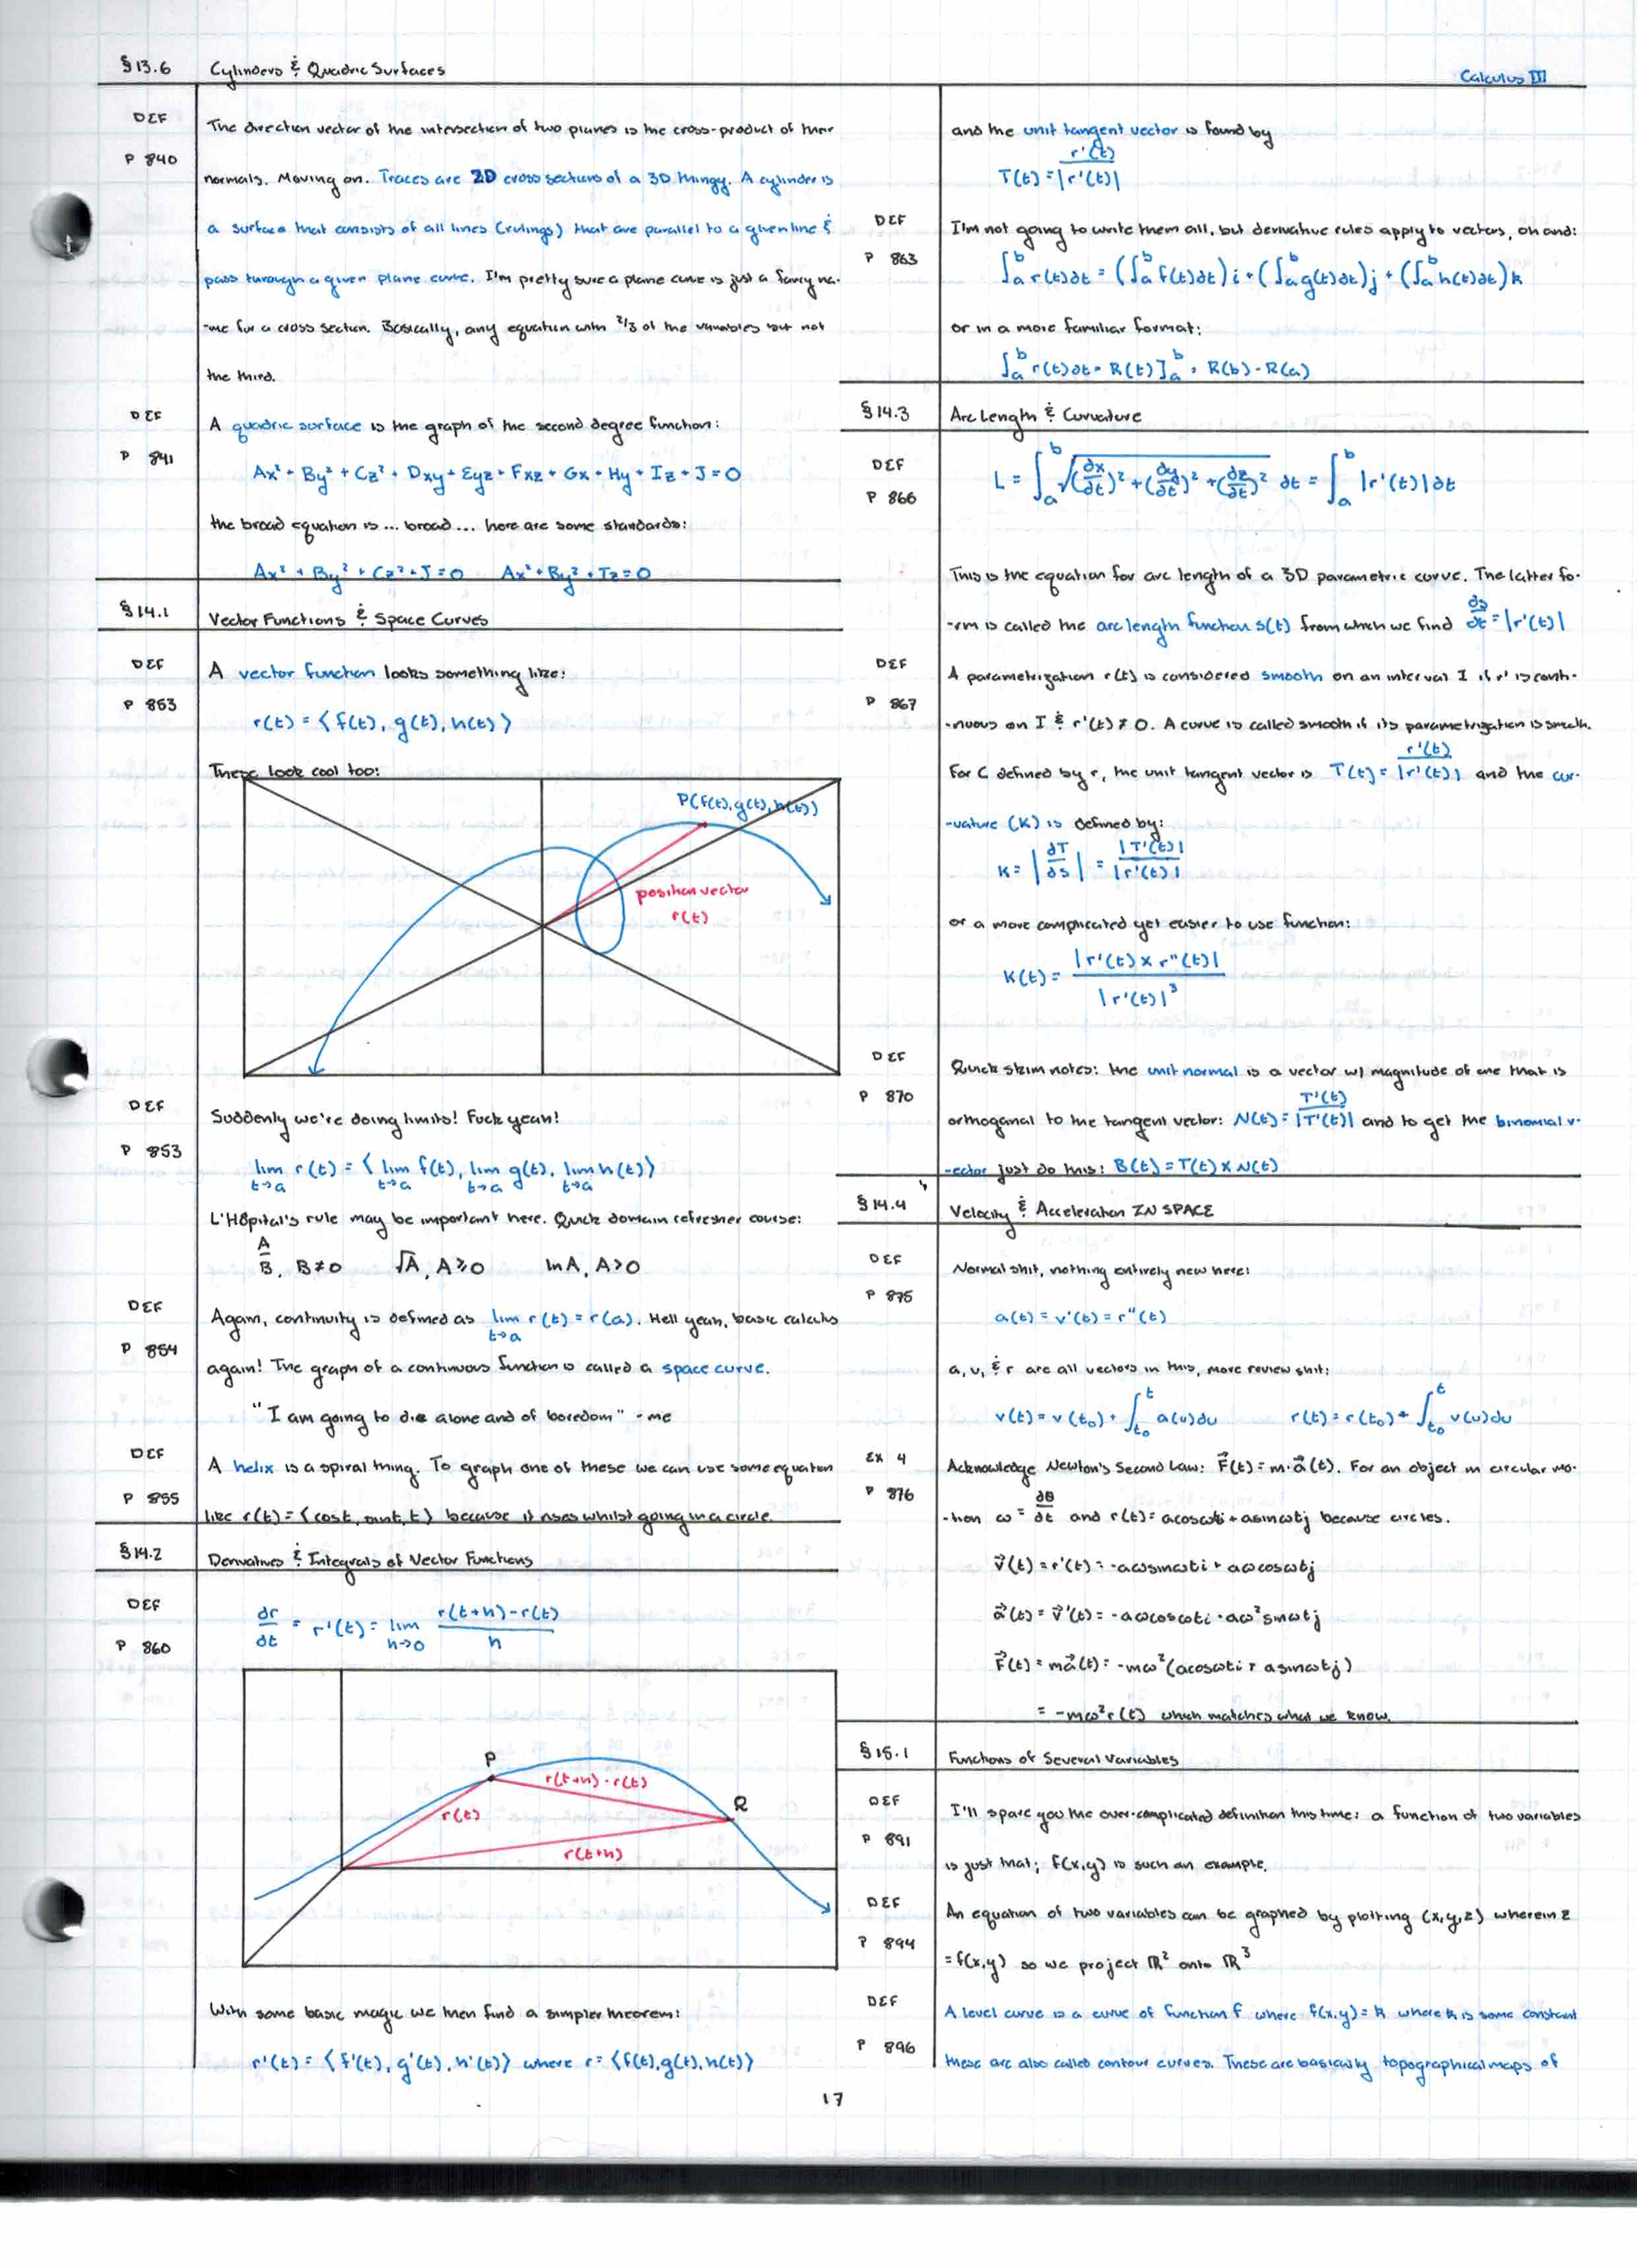 §13.6 Cylinders & Quadric Surfaces
Calculus III
DEF
P 840
The direction vector of the intersection of two planes is the cross-product of their
normals. Moving on. Traces are 2D cross sections of a 3D thingy. A cylinder is
a surface that consists of all lines (rulings) that are parallel to a given line &
pass through a given plane curve. I'm pretty sure a plane curve is just a fancy na-
-me for a cross section. Basically, any equation with 2/3 of the variables but not
the third.
DEF
P 841
A quadric surface is the graph of the second degree function:
Ax² + By² + Cz² + Dxy + Eyz + Fxz + Gx + Hy + Iz + J = 0
the broad equation is ... broad ... here are some standards:
Ax² + By² + Cz² + J = 0 Ax² + By² + Iz = 0
§14.1 Vector Functions & Space Curves
DEF
P 853
A vector function looks something like:
r(t) = ⟨f(t), g(t), h(t)⟩
These look cool too:
P(f(t), g(t), h(t))
position vector
r(t)
DEF
P 853
Suddenly we're doing limits! Fuck yeah!
lim t→a r(t) = ⟨lim t→a f(t), lim t→a g(t), lim t→a h(t)⟩
L'Hôpital's rule may be important here. Quick domain refresher course:
A/B, B≠0 √A, A≥0 ln A, A>0
DEF
P 854
Again, continuity is defined as lim t→a r(t) = r(a). Hell yeah, basic calculus
again! The graph of a continuous function is called a space curve.
"I am going to die alone and of boredom" - me
DEF
P 855
A helix is a spiral thing. To graph one of these we can use some equation
like r(t) = ⟨cost, sint, t⟩ because it rises whilst going in a circle.
§14.2 Derivatives & Integrals of Vector Functions
DEF
P 860
dr/dt = r'(t) = lim h→0 (r(t+h) - r(t))/h
P
r(t+h) - r(t)
Q
r(t)
r(t+h)
With some basic magic we then find a simpler theorem:
r'(t) = ⟨f'(t), g'(t), h'(t)⟩ where r = ⟨f(t), g(t), h(t)⟩
and the unit tangent vector is found by
T(t) = r'(t)/|r'(t)|
DEF
P 863
I'm not going to write them all, but derivative rules apply to vectors, oh and:
∫ₐᵇ r(t)dt = (∫ₐᵇ f(t)dt)i + (∫ₐᵇ g(t)dt)j + (∫ₐᵇ h(t)dt)k
or in a more familiar format:
∫ₐᵇ r(t)dt = R(t)]ₐᵇ = R(b) - R(a)
§14.3 Arc Length & Curvature
DEF
P 866
L = ∫ₐᵇ √((dx/dt)² + (dy/dt)² + (dz/dt)²) dt = ∫ₐᵇ |r'(t)|dt
This is the equation for arc length of a 3D parametric curve. The latter fo-
-rm is called the arc length function s(t) from which we find ds/dt = |r'(t)|
DEF
P 867
A parametrization r(t) is considered smooth on an interval I if r' is conti-
-nuous on I & r'(t) ≠ 0. A curve is called smooth if its parametrization is smooth.
For C defined by r, the unit tangent vector is T(t) = r'(t)/|r'(t)| and the cur-
-vature (K) is defined by:
K = |dT/ds| = |T'(t)|/|r'(t)|
or a more complicated yet easier to use function:
K(t) = |r'(t) × r"(t)|/|r'(t)|³
DEF
P 870
Quick skim notes: the unit normal is a vector w/ magnitude of one that is
orthogonal to the tangent vector: N(t) = T'(t)/|T'(t)| and to get the binomial v-
-ector just do this: B(t) = T(t) × N(t)
§14.4 Velocity & Acceleration IN SPACE
DEF
P 875
Normal shit, nothing entirely new here:
a(t) = v'(t) = r"(t)
a, v, & r are all vectors in this, more review shit:
v(t) = v(t₀) + ∫ₜ₀ᵗ a(u)du r(t) = r(t₀) + ∫ₜ₀ᵗ v(u)du
Ex 4
P 876
Acknowledge Newton's Second Law: F⃗(t) = m·a⃗(t). For an object in circular mo-
-tion ω = dθ/dt and r(t) = acosωti + asinωtj because circles.
v⃗(t) = r'(t) = -aωsinωti + aωcosωtj
a⃗(t) = v⃗'(t) = -aωcosωti - aω²sinωtj
F⃗(t) = ma⃗(t) = -mω²(acosωti + asinωtj)
= -mω²r(t) which matches what we know.
§15.1 Functions of Several Variables
DEF
P 891
I'll spare you the over-complicated definition this time: a function of two variables
is just that; f(x,y) is such an example.
DEF
P 894
An equation of two variables can be graphed by plotting (x,y,z) wherein z
= f(x,y) so we project ℝ² onto ℝ³
DEF
P 896
A level curve is a curve of function f where f(x,y) = k where k is some constant
these are also called contour curves. These are basically topographical maps of
17